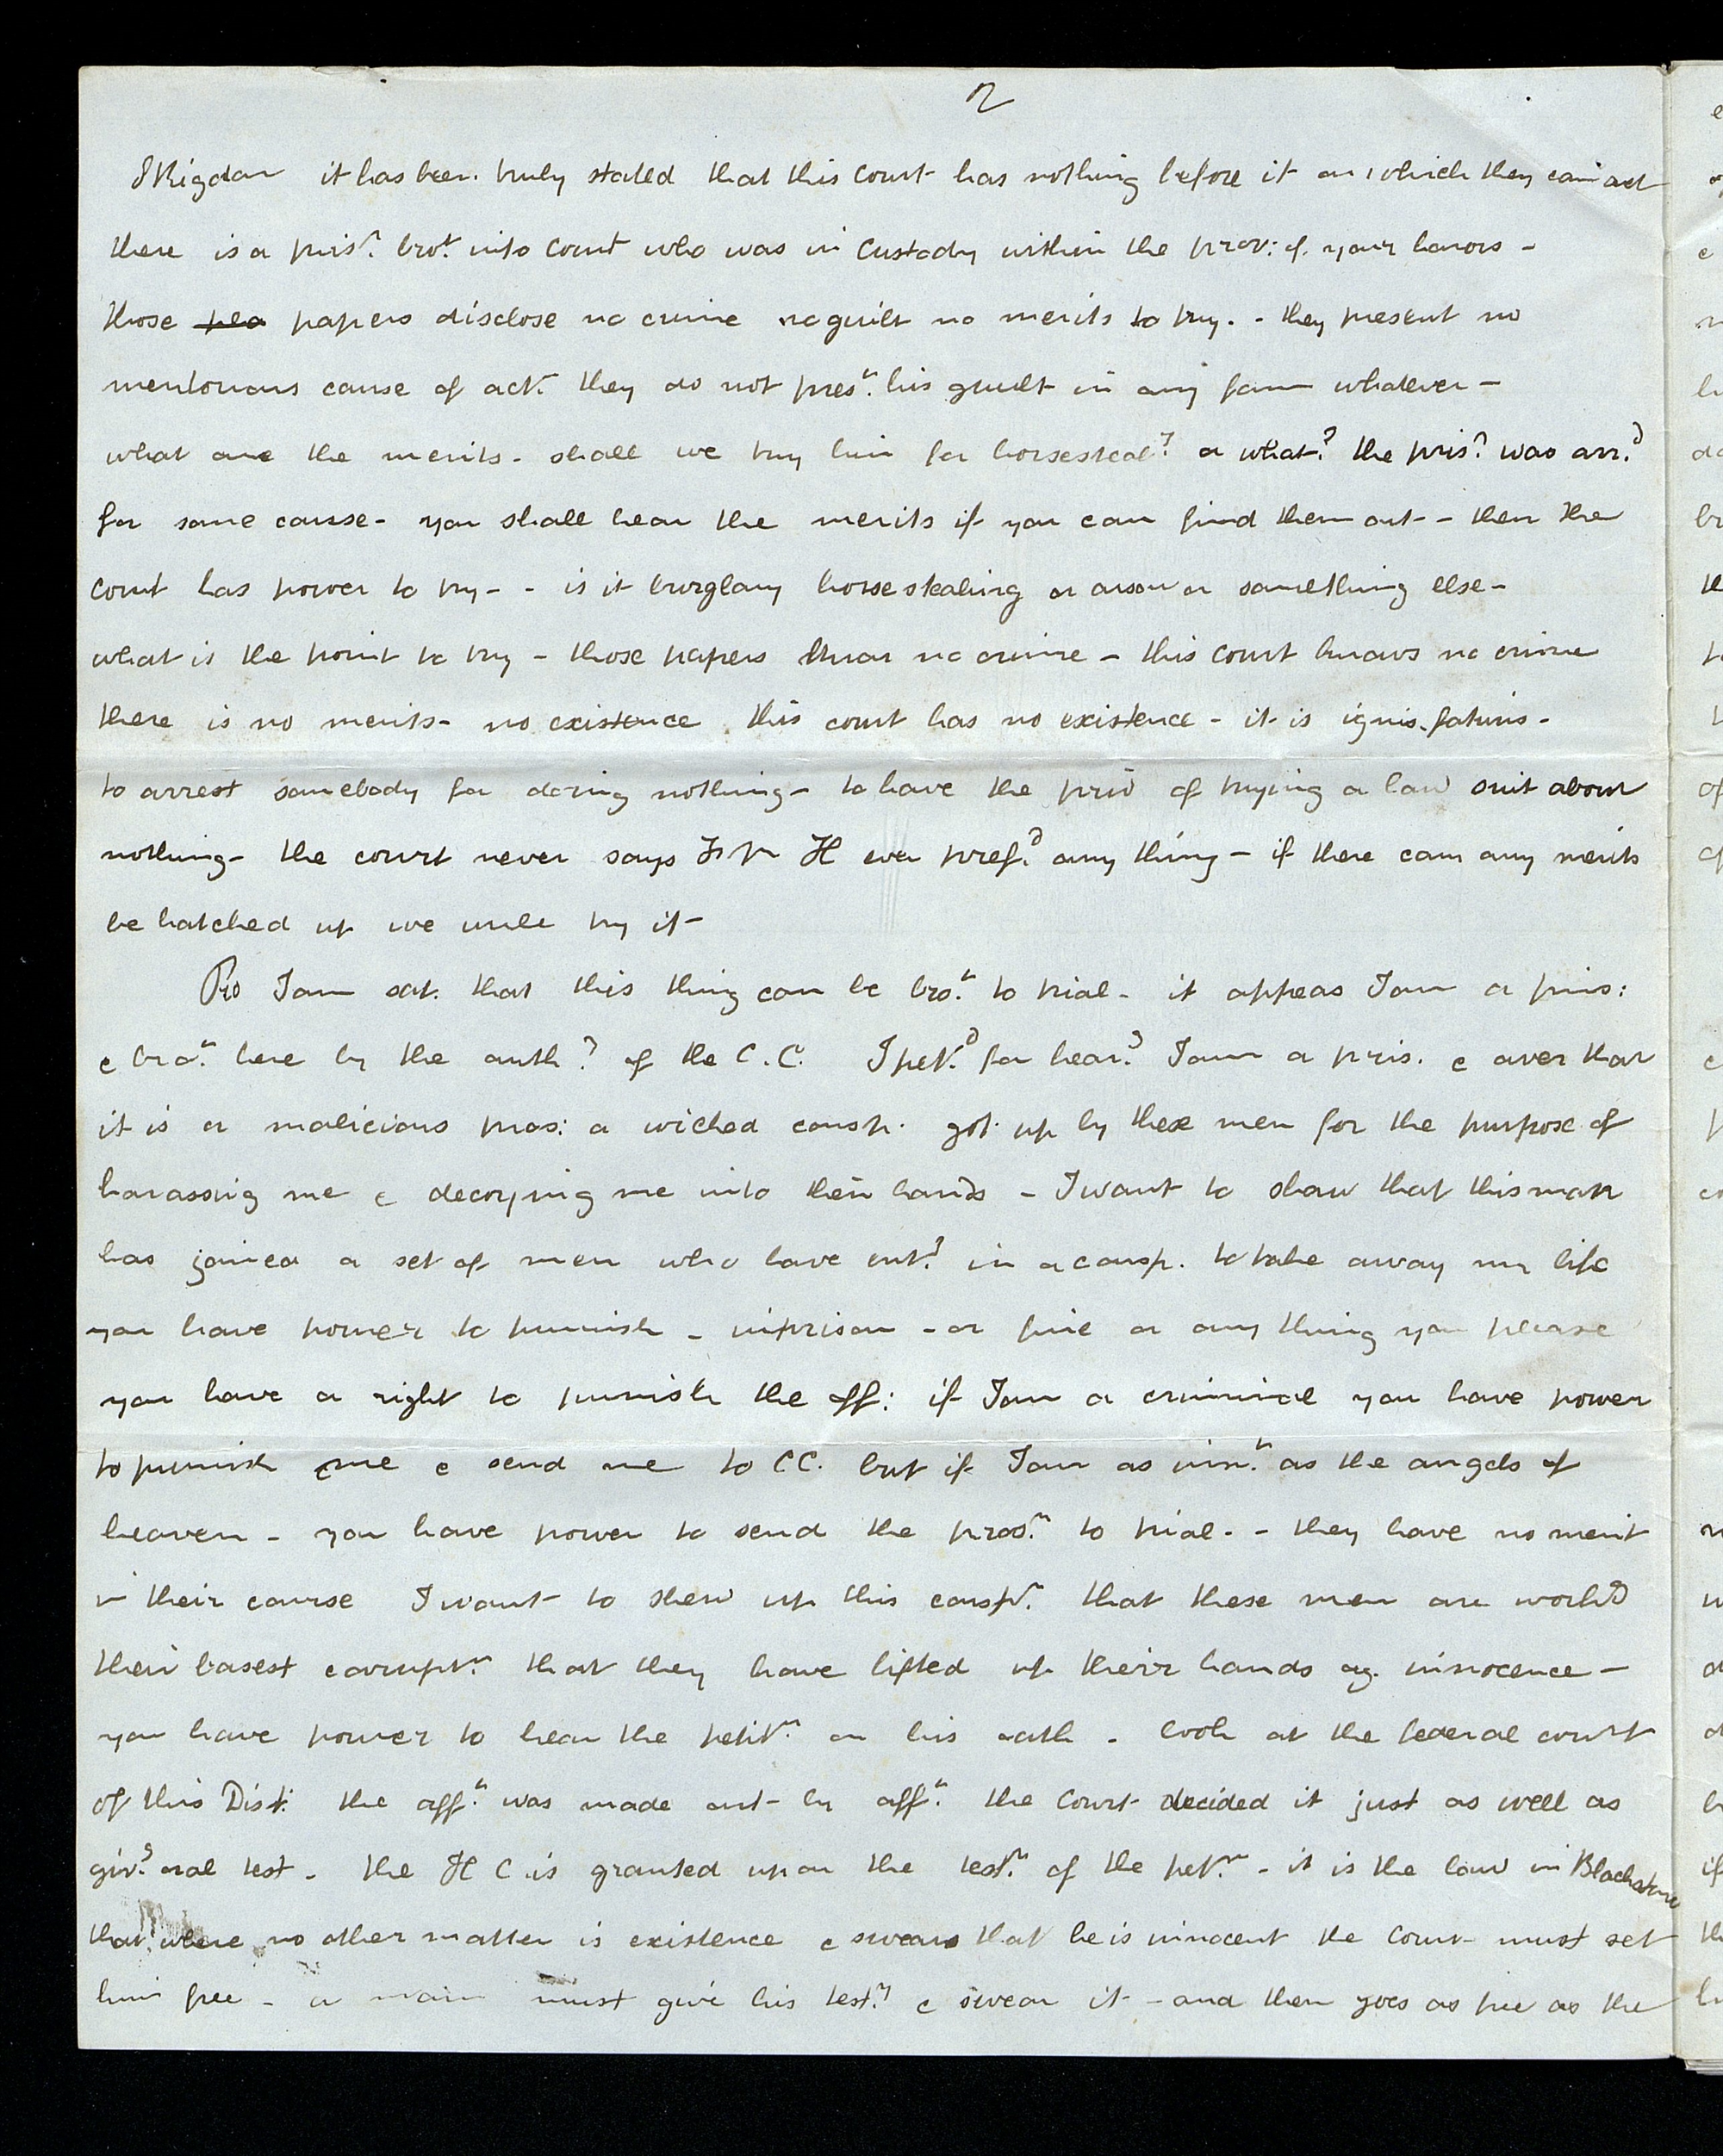 2
S Rigdon it has been truly stated that this court has nothing before it on which they can act
there is a pris^r. bro^t. into court who was in custody within the prov: of your honors -
those pea papers disclose no crime no guilt no merits to try. - they present no
meritorious cause of act^n. they do not pres^t. his guilt in any form whatever -
what are the merits - shall we try him for horsesteal^g. or what? the pris^r. was arr^d.
for some cause - you shall hear the merits if you can find them out - then the
court has power to try - - is it burglary horse stealing or arson or something else -
what is the point to try - those papers know no crime - this court knows no crime
there is no merits - no existence this court has no existence - it is ignis fatuus -
to arrest somebody for doing nothing - to have the priv of trying a law suit about
nothing - the court never says F M H ever pref^d. any thing - if there can any merits
be hatched up we will try it -
Pro I am sat. that this thing can be bro^t. to trial - it appeas I am a pris:
& bro^t. here by the auth^y. of the C. C. I pet^d. for hear^g. I am a pris. & aver that
it is a malicious pros: a wicked consp. got up by these men for the purpose of
harassing me & decoying me into their hands - I want to show that this man
has joined a set of men who have ent^d. in a consp. to take away my life
you have power to punish - imprison - or fine or any thing you please
you have a right to punish the off: if I am a criminal you have power
to punish me & send me to C C. but if I am as inn^t. as the angels of
heaven - you have power to send the pros^n. to trial - - they have no merit
in their course I want to shew up this consp^n. that these men are work^g
their basest corrupt^n. that they have lifted up their hands ag. innocence -
you have power to hear the petit^n. on his oath - look at the federal court
of this Dist: the aff^t. was made out by aff^t. the Court decided it just as well as
giv^g. oral test - the H C is granted upon the test^n. of the pet^n. - it is the law in Blackstone
that where no other matter is existence & swears that he is innocent the Court must set
him free - a man must give his test^y. & swear it - and then goes as free as the